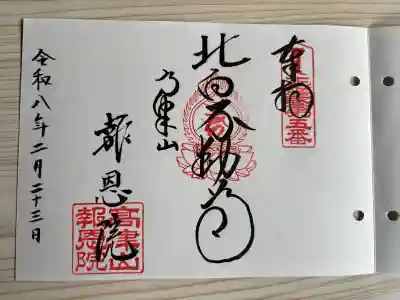 奉拝
五番
北向不動尊
高津山
報恩院
高津山
報恩院
令和八年二月二十三日